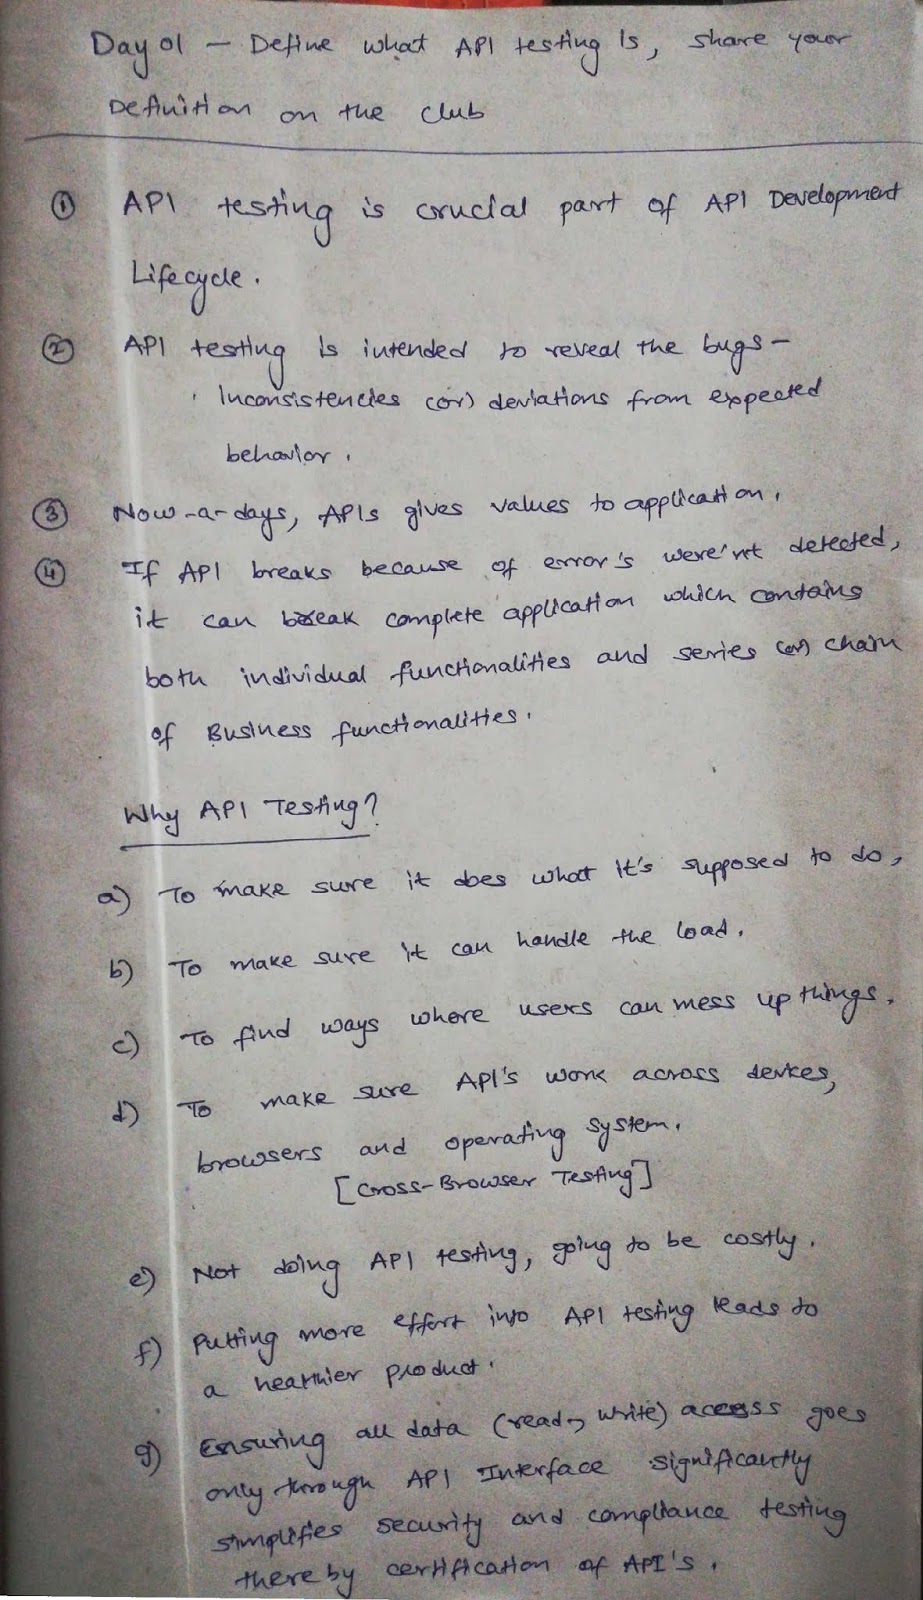 Day 01 - Define what API testing is, share your
Definition on the club
① API testing is crucial part of API Development
Lifecycle.
② API testing is intended to reveal the bugs -
Inconsistencies (or) deviations from expected
behavior.
③ Now-a-days, APIs gives values to application.
④ If API breaks because of error's were'nt detected,
it can break complete application which contains
both individual functionalities and series (or) chain
of Business functionalities.
Why API Testing?
a) To make sure it does what it's supposed to do,
b) To make sure it can handle the load.
c) To find ways where users can mess up things.
d) To make sure API's work across devices,
browsers and operating system.
[Cross-Browser Testing]
e) Not doing API testing, going to be costly.
f) Putting more effort into API testing leads to
a healthier product.
g) Ensuring all data (read, write) access goes
only through API Interface significantly
simplifies security and compliance testing
there by certification of API's.